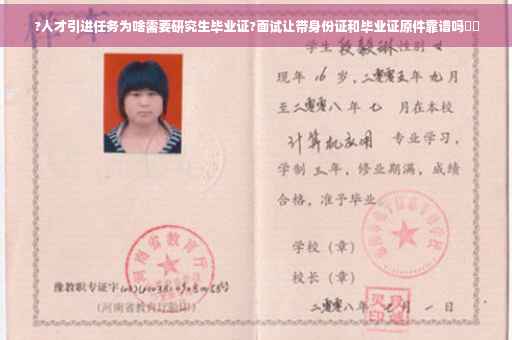 ?人才引进任务为啥需要研究生毕业证?面试让带身份证和毕业证原件靠谱吗□□
学生段毅琳性别女
现年16岁，二零零五年九月
至二零零八年七月在本校
计算机应用 专业学习，
学制三年，修业期满，成绩
合格，准予毕业
学校（章）
河南省教育厅
校长（章）
豫教职专证字
(河南省教育厅验印)
二零零八年七月一日